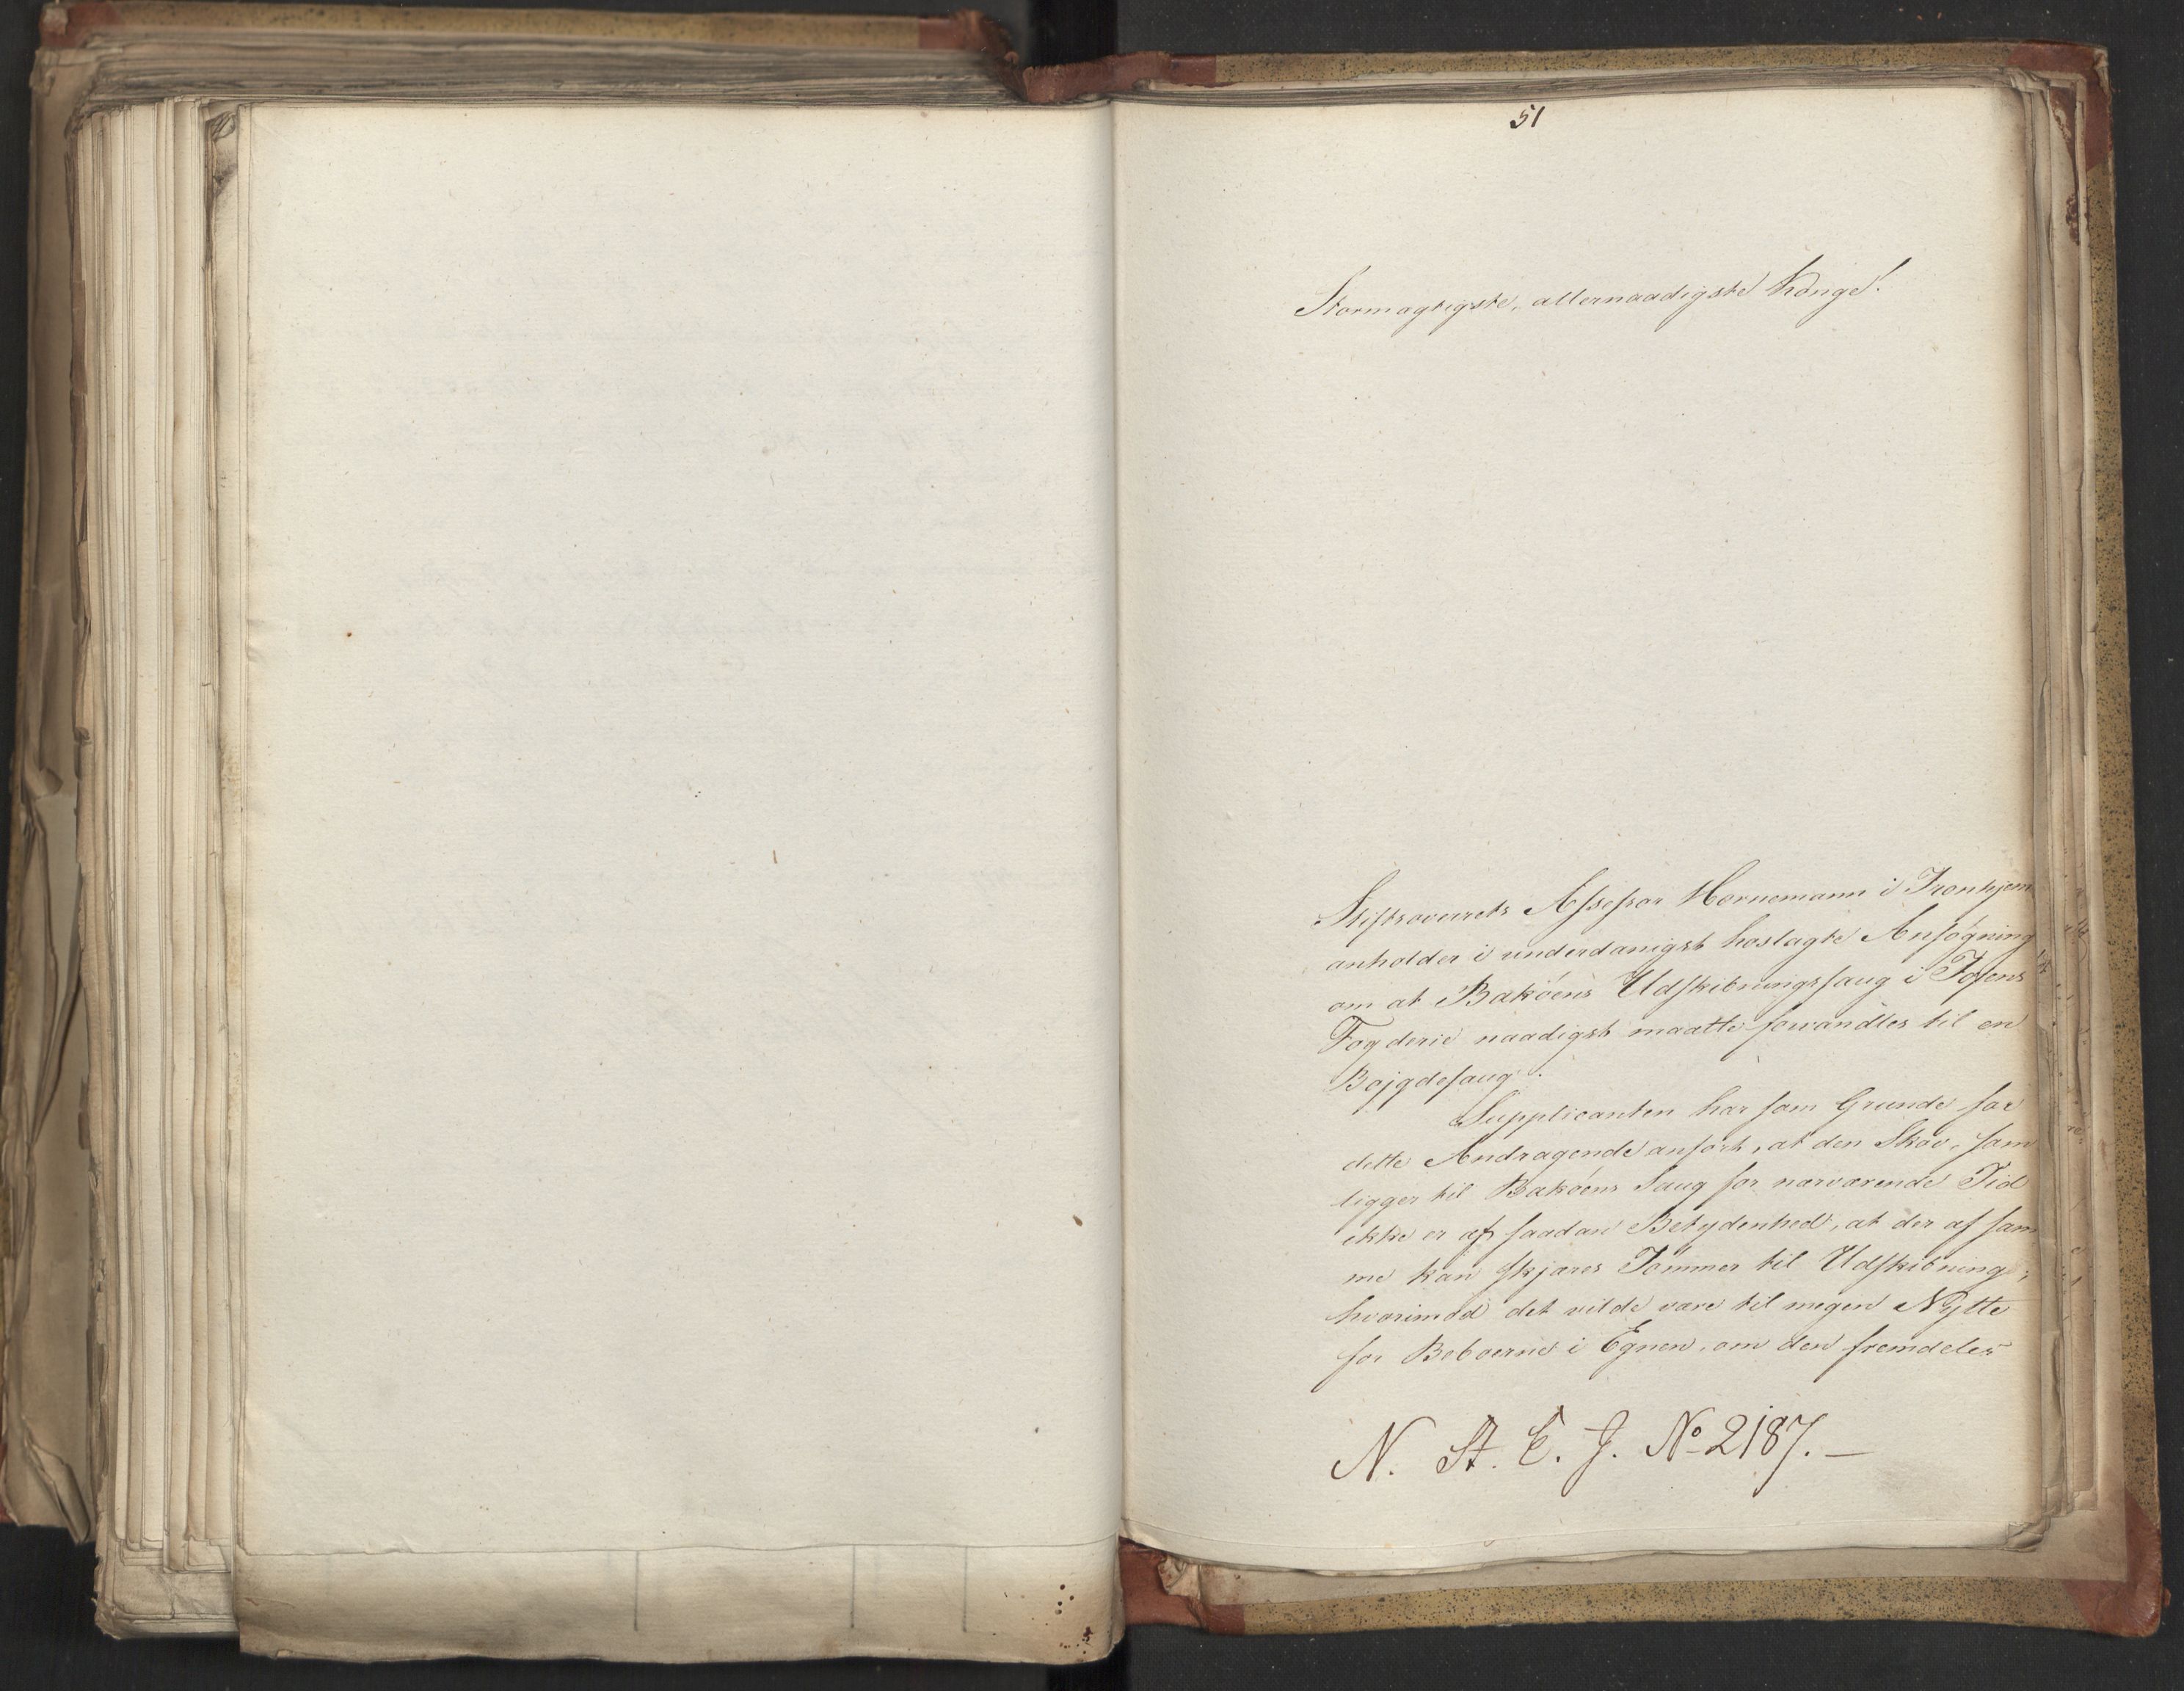 51
Stormægtigste, allernaadigste Konge!
Stiftsoverrets Assessor Hornemann i Tronhjem
anholder i underdanigst hoslagte Ansøgning
om at Bakøens Udskibningssaug i Fosens
Fogderie naadigst maatte forvandles til en
Bøjgdesaug.
Supplicanten har som Grunde for
dette Andragende anført, at den Skov, som
ligger til Bakøens Saug for nærværende Tid
ikke er af saadan Betydenhed, at der af sam
me kan skjæres Tømmer til Udskibning;
hvorimod det vilde være til megen Nytte
for Beboerne i Egnen, om den fremdeles
N. St. E. J. No 2187. —